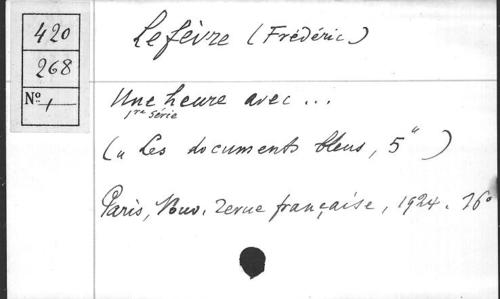 420
268
Nº 1
Lefèvre (Frédéric)
Une heure avec...
1re série
(„ Les documents bleus, 5 ")
Paris, Nouv. revue française, 1924. 16º